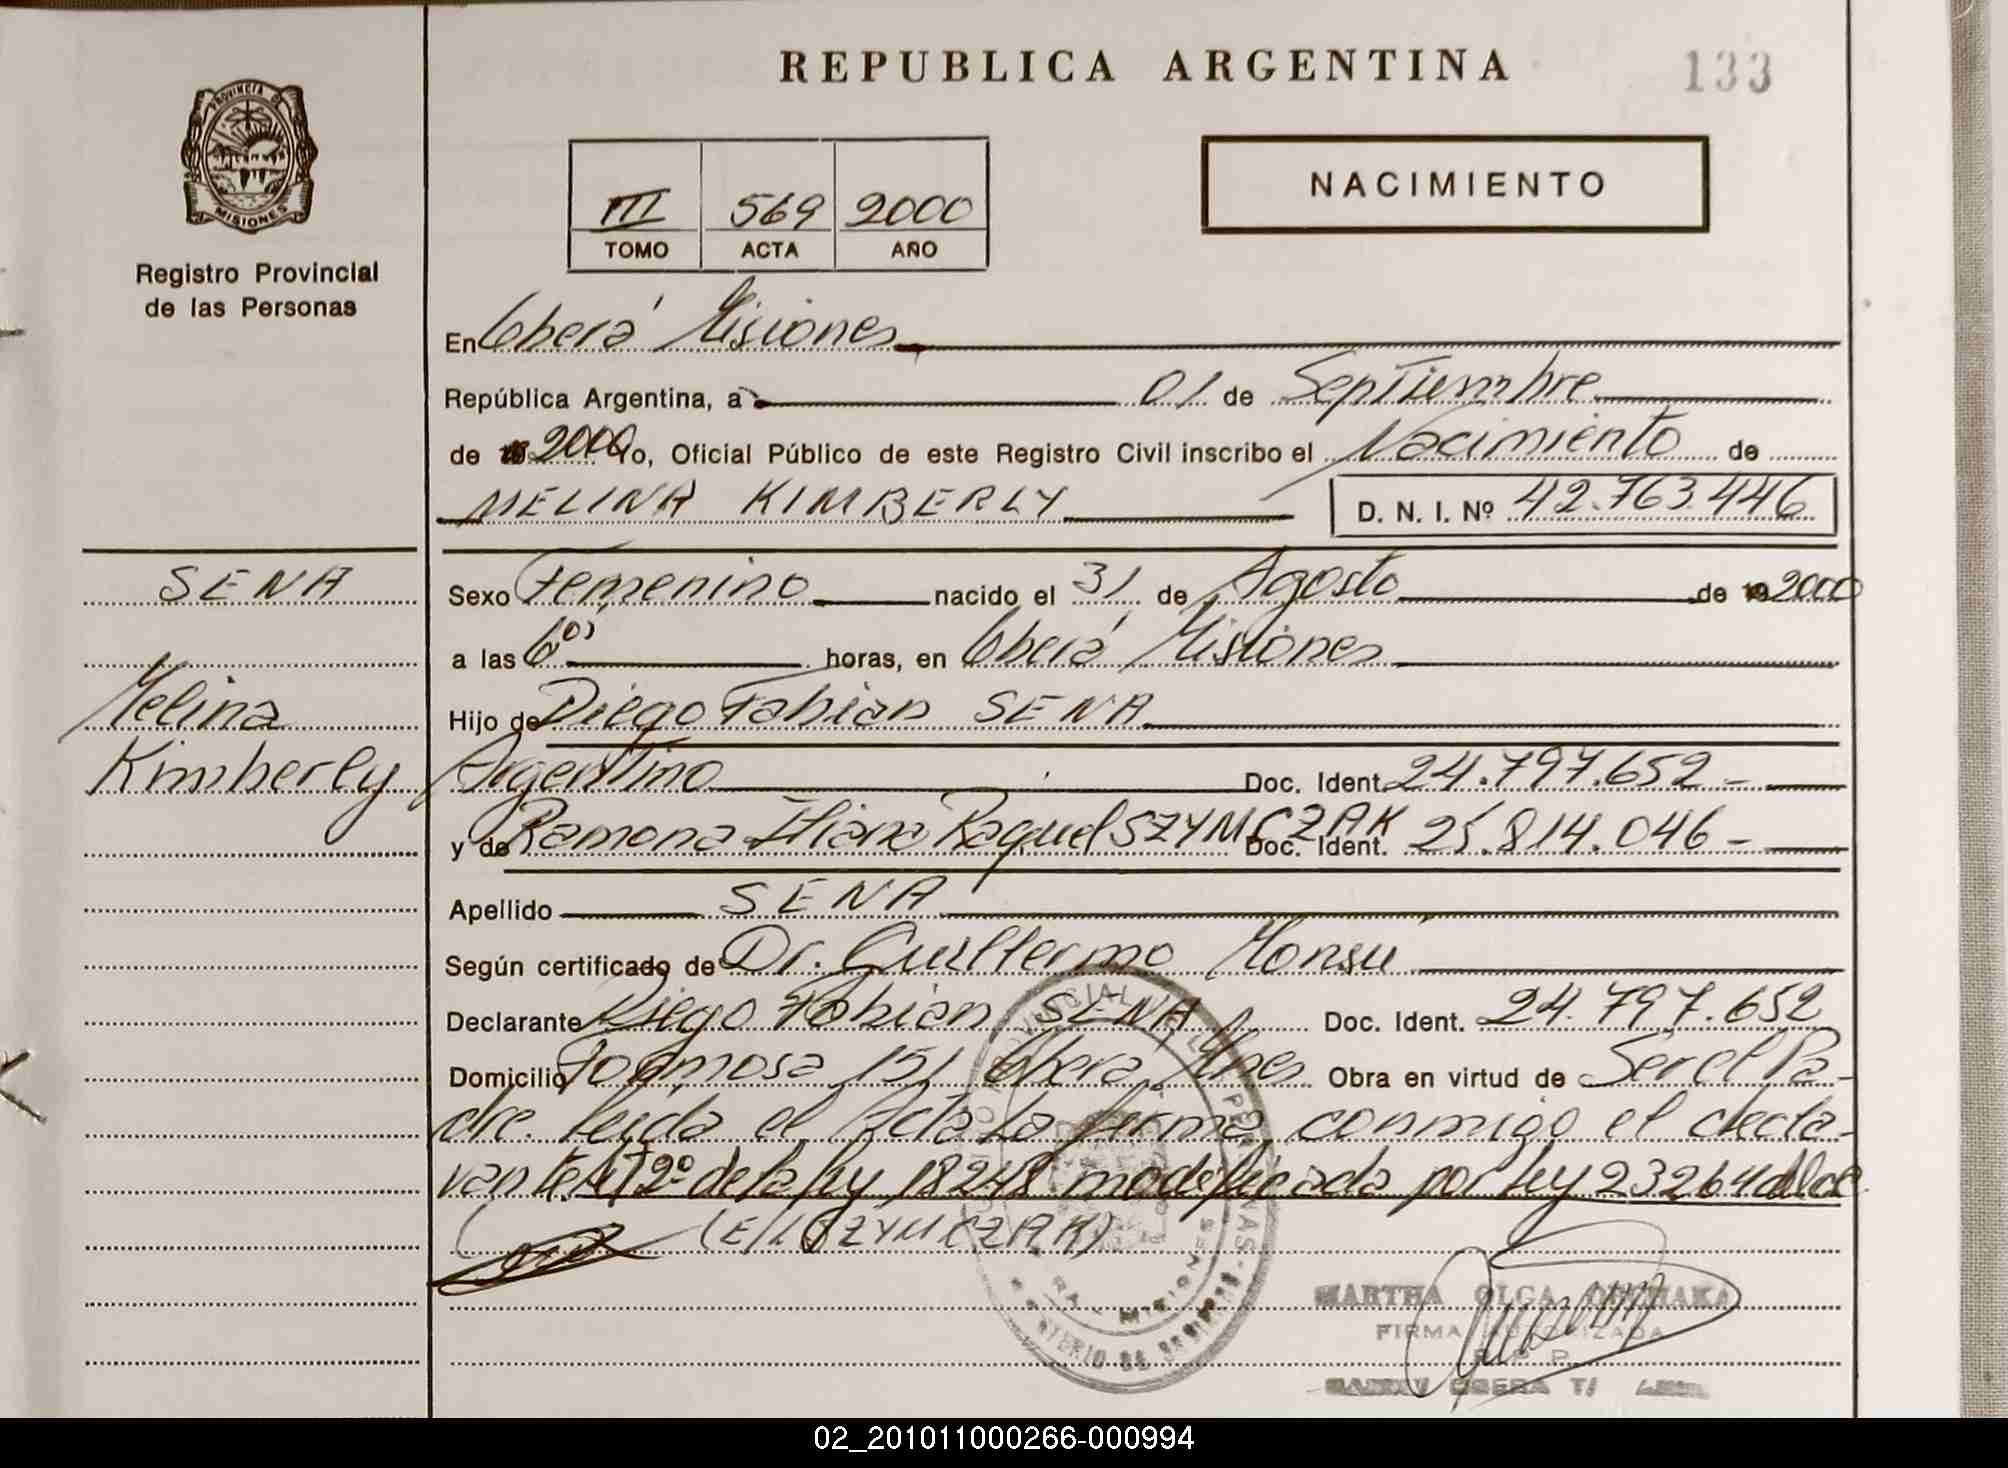 REPUBLICA ARGENTINA
133
PROVINCIA DE
MISIONES
Registro Provincial
de las Personas
III 569 2000
TOMO ACTA AÑO
NACIMIENTO
En Oberá Misiones
República Argentina, a 01 de Septiembre
de 2000 Yo, Oficial Público de este Registro Civil inscribo el Nacimiento de
MELINA KIMBERLY D. N. I. Nº 42.763.446
SENA
Melina
Kimberly
Sexo Femenino nacido el 31 de Agosto de 2000
a las 6 horas, en Oberá Misiones
Hijo de Diego Fabian SENA
Argentino Doc. Ident. 24.797.652 -
y de Ramona Iliana Raquel SZYMCZAK Doc. Ident. 25.814.046 -
Apellido SENA
Según certificado de Dr. Guillermo Monsú
Declarante Diego Fabián SENA Doc. Ident. 24.797.652
Domicilio Formosa 151 Oberá Mnes Obra en virtud de Ser el Pa-
dre. leida el Acta la firma conmigo el decla-
rante Art 2º de la ley 18248 modificada por ley 23264
(E/L SZYMCZAK)
MARTHA OLGA
FIRMA AUTORIZADA
R. P. P.
OBERA
02_201011000266-000994